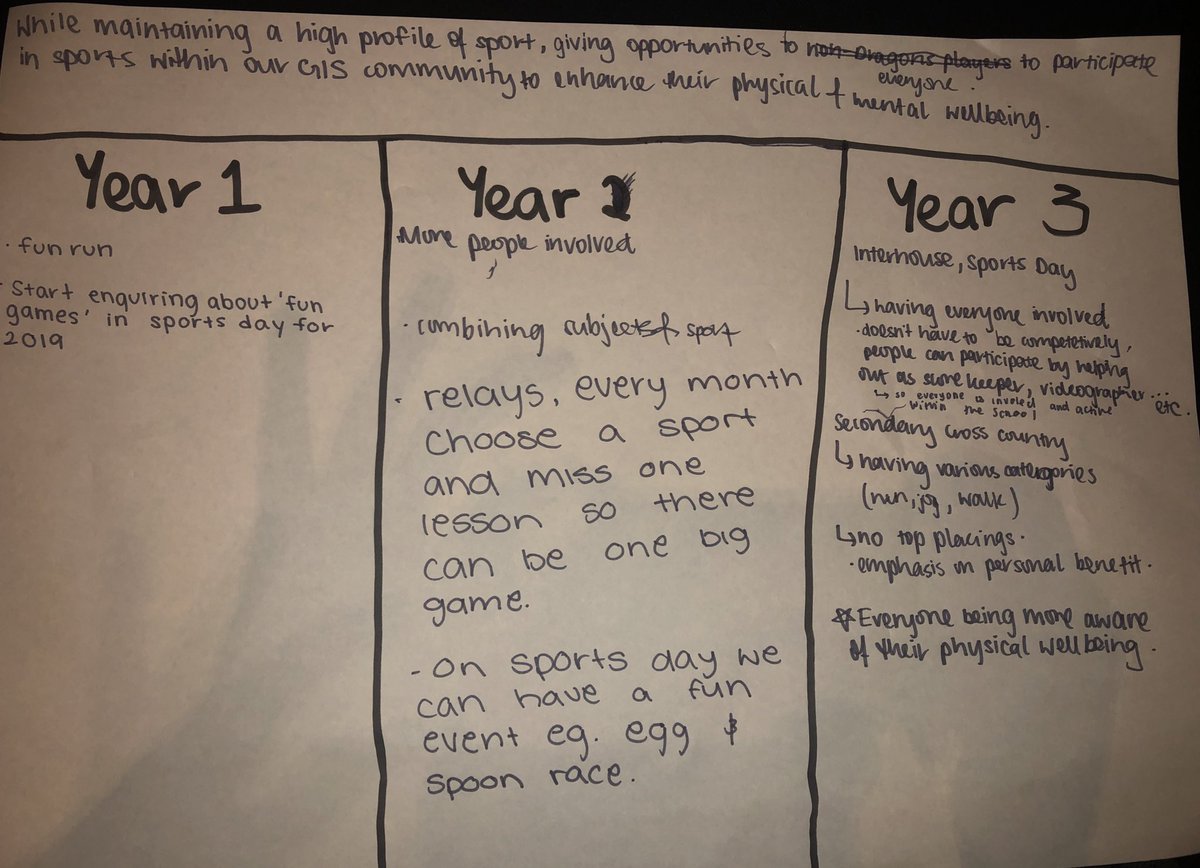 While maintaining a high profile of sport, giving opportunities to non-Dragons players to participate
everyone.
in sports within our GIS community to enhance their physical & mental wellbeing.
Year 1
· fun run
· Start enquiring about 'fun
games' in sports day for
2019
Year 2
·More people involved
· combining subjects & sport
· relays, every month
choose a sport
and miss one
lesson so there
can be one big
game.
- On sports day we
can have a fun
event eg. egg &
spoon race.
Year 3
Interhouse, Sports Day
↳ having everyone involved
· doesn't have to be competetively,
people can participate by helping
out as score keeper, videographer... etc.
↳ so everyone is involed and active
within the school
Secondary Cross country
↳ having various catergories
(run, jog, walk)
↳ no top placings.
· emphasis on personal benefit.
* Everyone being more aware
of their physical wellbeing.